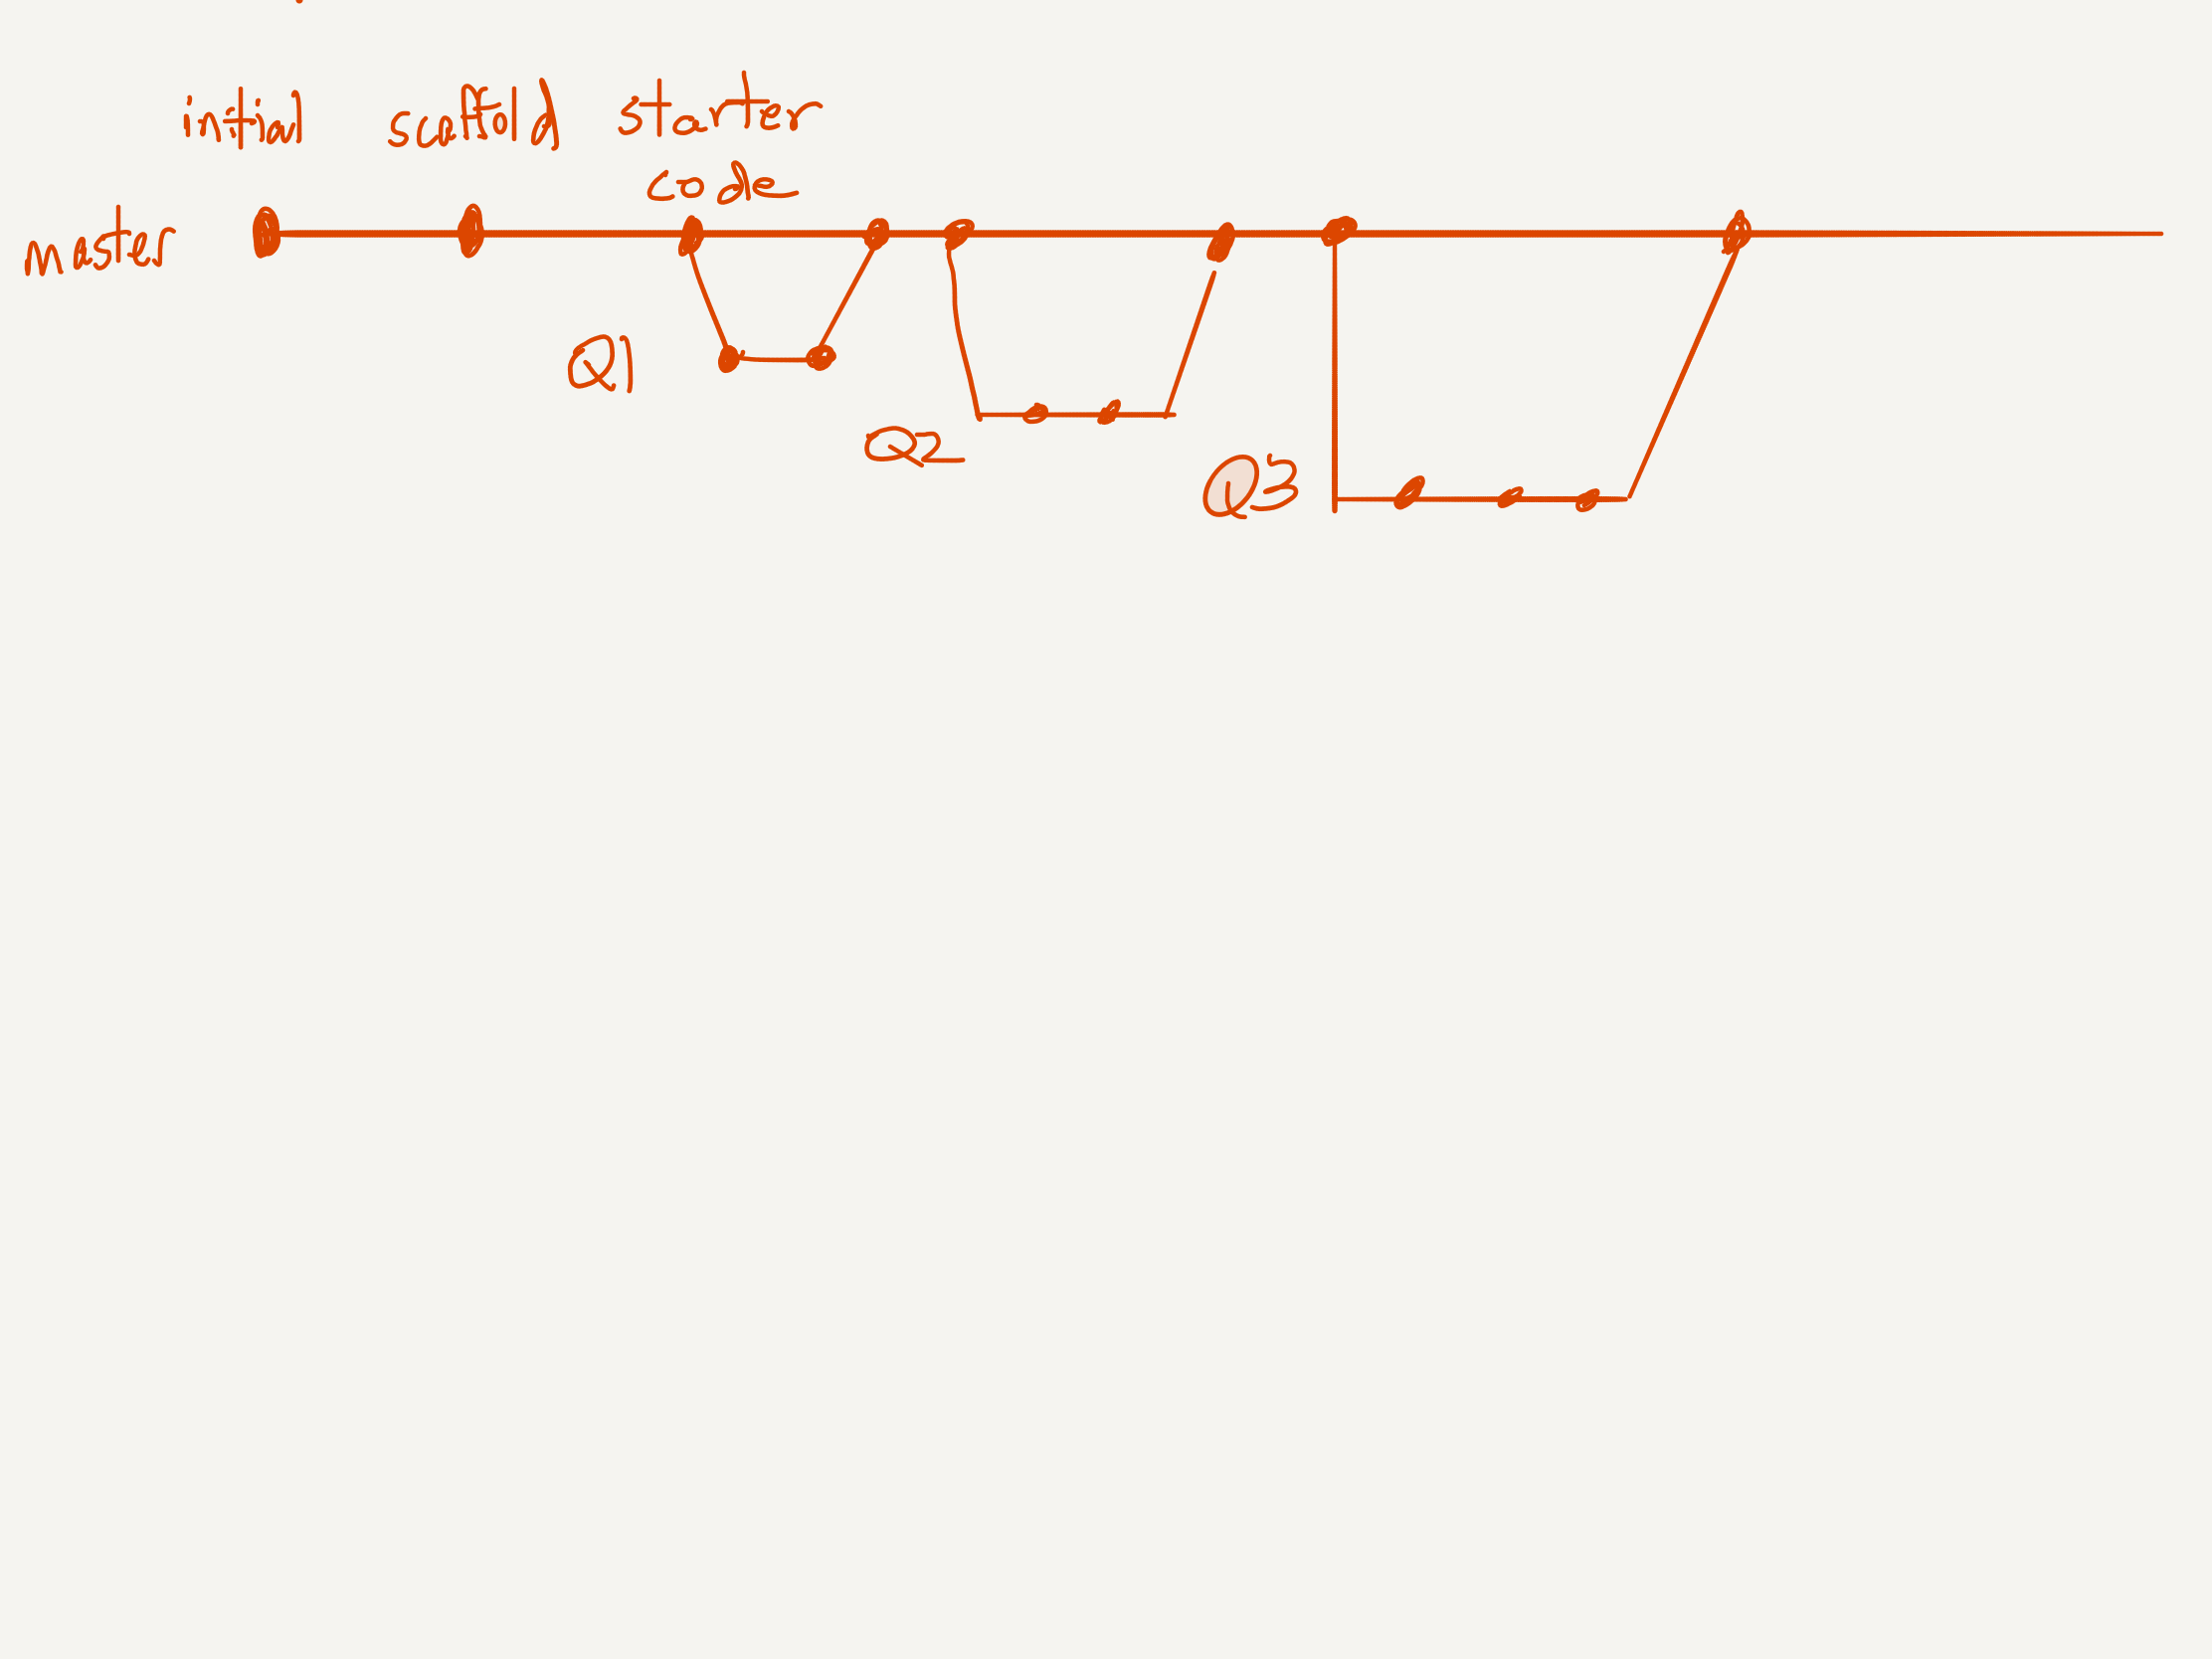 initial scaffold starter
code
master
Q1
Q2
Q3